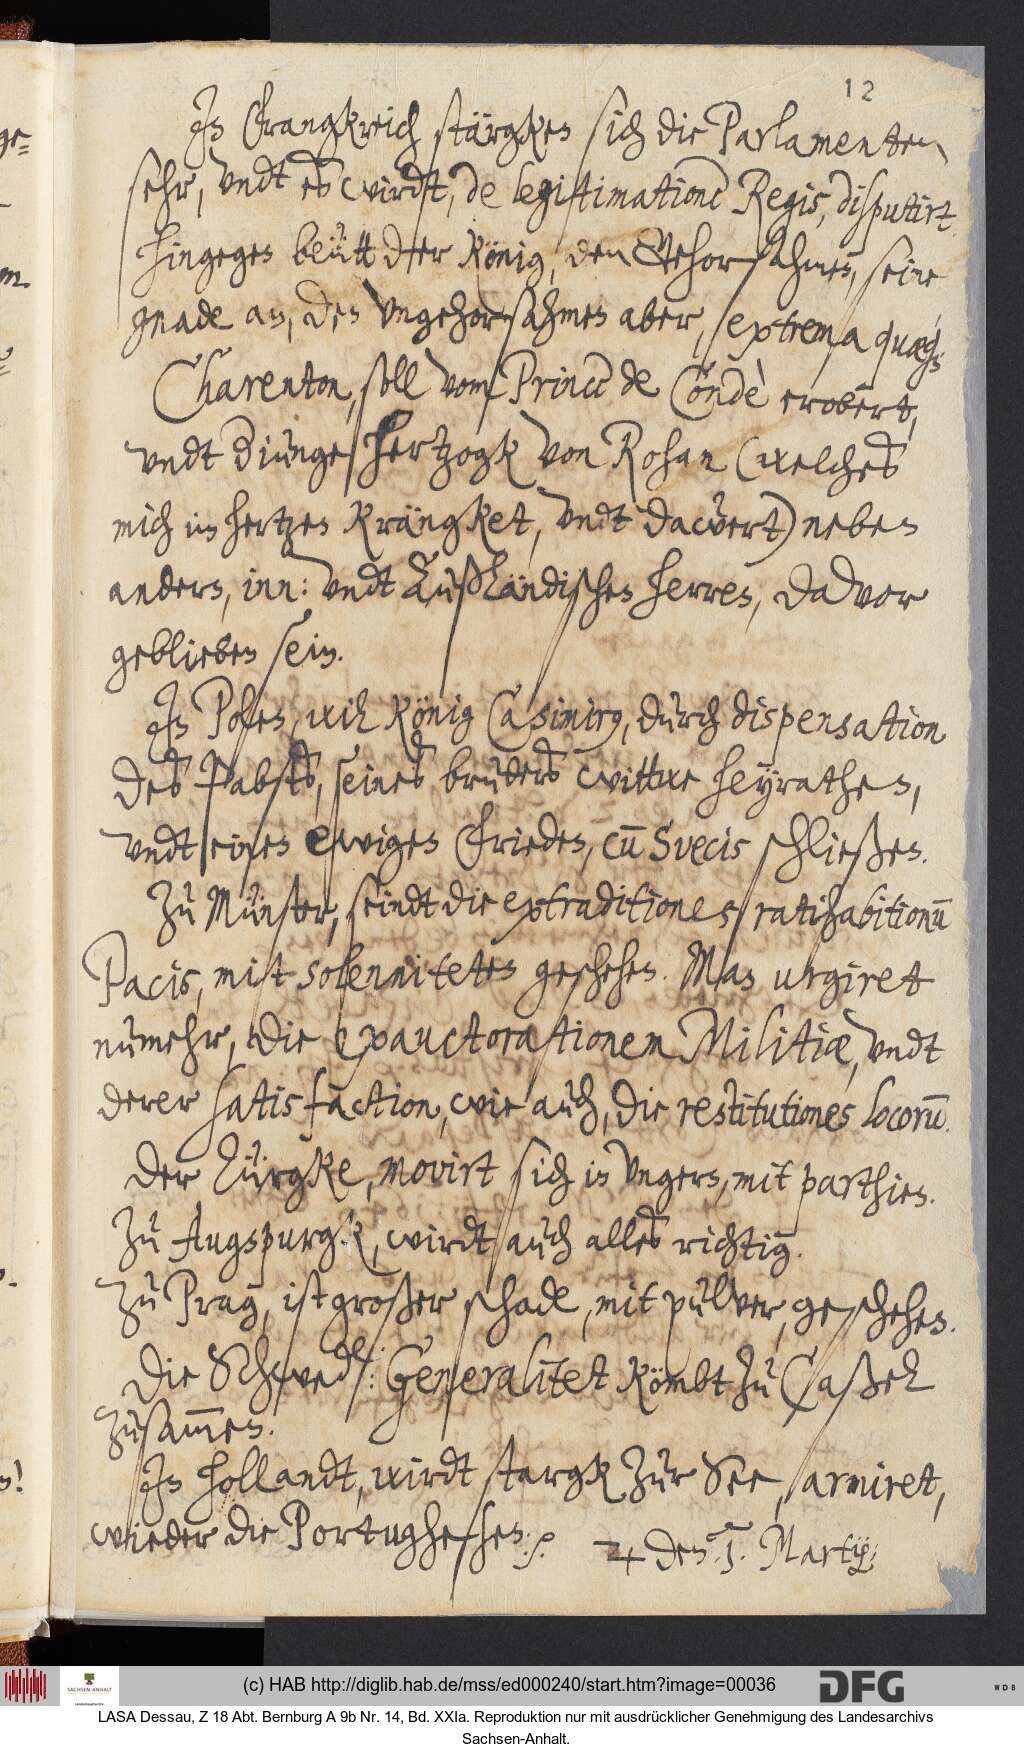 12
In Frangkreich stärgken sich die Parlamenten
sehr, undt es wirdt, de legittimatione Regis, disputirt.
Hingegen beütt der König, den Gehorsahmen, seine
gnade an, den Ungehorsahmen aber, extrema quæq;
Charenton, soll vom Prince de Condè erobert,
undt d' junge Hertzogk von Rohan (welches
mich im hertzen kräncket, undt dawert) neben
andern, inn: undt Außländischen herren, davor
geblieben sein.
In Polen, will König Casimirg, durch dispensation
des Pabsts, seines bruders wittwe heÿrathen,
undt einen ewigen frieden, cū Svecis schließen.
Zu Münster, seindt die extraditiones ratihabitionū
Pacis, mitt solenniteten geschehen. Man urgiret
numehr, die exauctorationem Militiæ, undt
derer satisfaction, wie auch, die restitutiones locorū.
Der Türgke, movirt sich in Ungern, mit parthien.
Zu Augspurgk, wirdt auch alles richtig.
Zu Prag, ist großer schade, mit pulver, geschehen.
Die Schwed: Generalitet kömbt zu Caßel
zusam̄en.
In hollandt, wirdt stargk zur See, armiret,
wieder die Portughesen.
♃ den: 1. Martij;
(c) HAB http://diglib.hab.de/mss/ed000240/start.htm?image=00036
SACHSEN-ANHALT
DFG
WDB
LASA Dessau, Z 18 Abt. Bernburg A 9b Nr. 14, Bd. XXIa. Reproduktion nur mit ausdrücklicher Genehmigung des Landesarchivs
Sachsen-Anhalt.